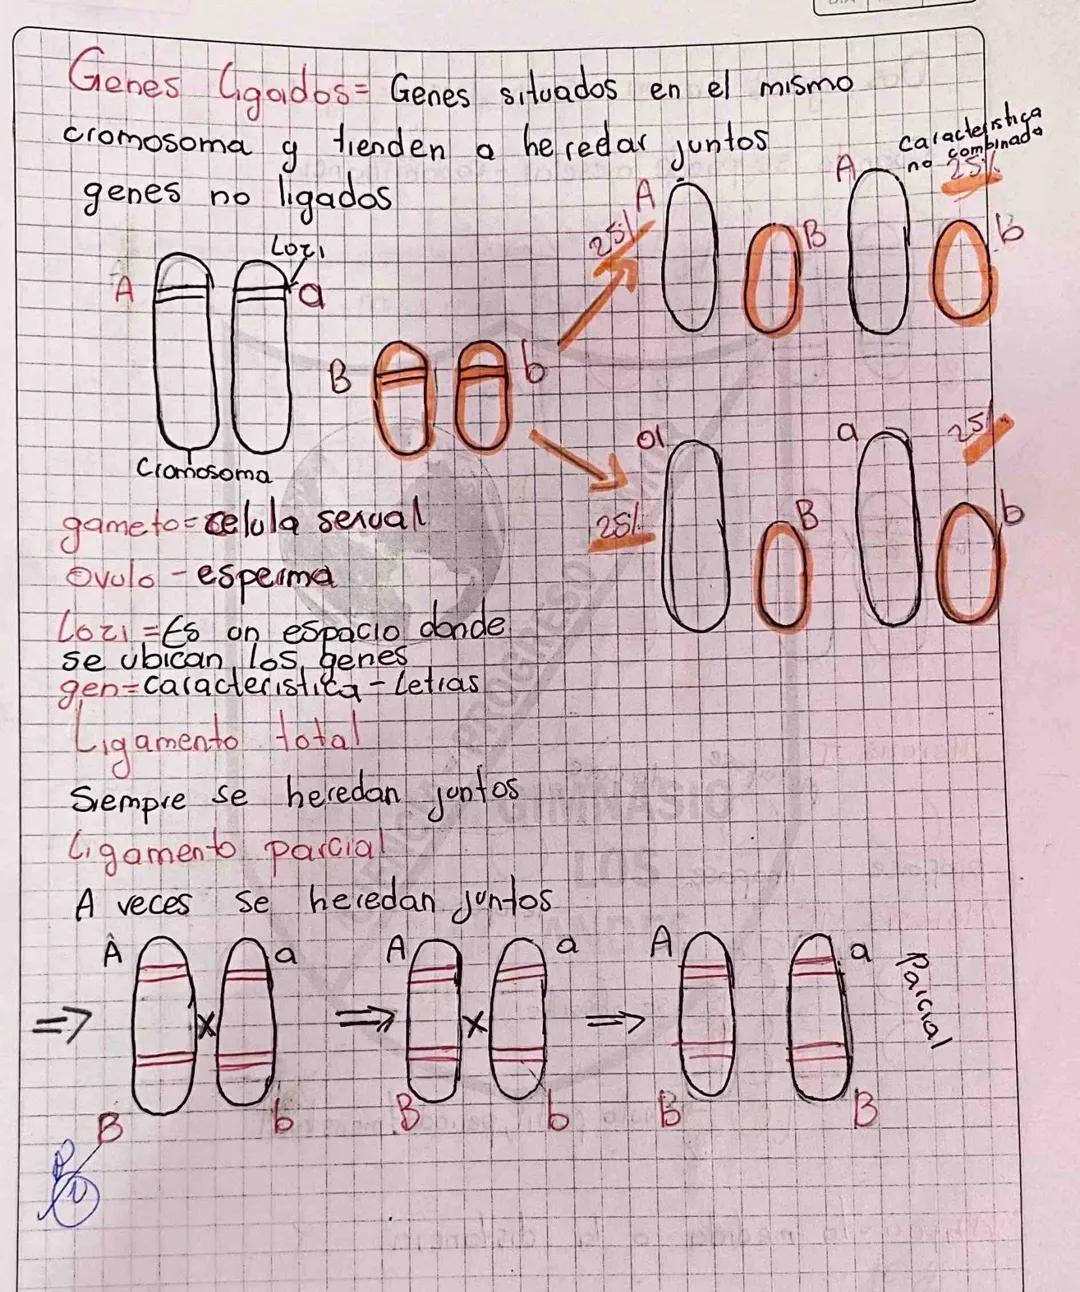 Genes Ligados= Genes situados en el mismo
cromosoma y tienden a heredar juntos
genes no ligados
Caracteristica
no combinada
A 25% B A 25% b
Lozi
A a
B b
Cromosoma
a 25% B a 25% b
gameto=celula sexual
Ovulo - esperma
Lozi =Es un espacio donde
se ubican los genes
gen=caracteristica - Letras
Ligamento total
Siempre se heredan juntos
Ligamento parcial
A veces se heredan juntos
A a A a A a
=> x => x =>
Parcial
B b B b B B